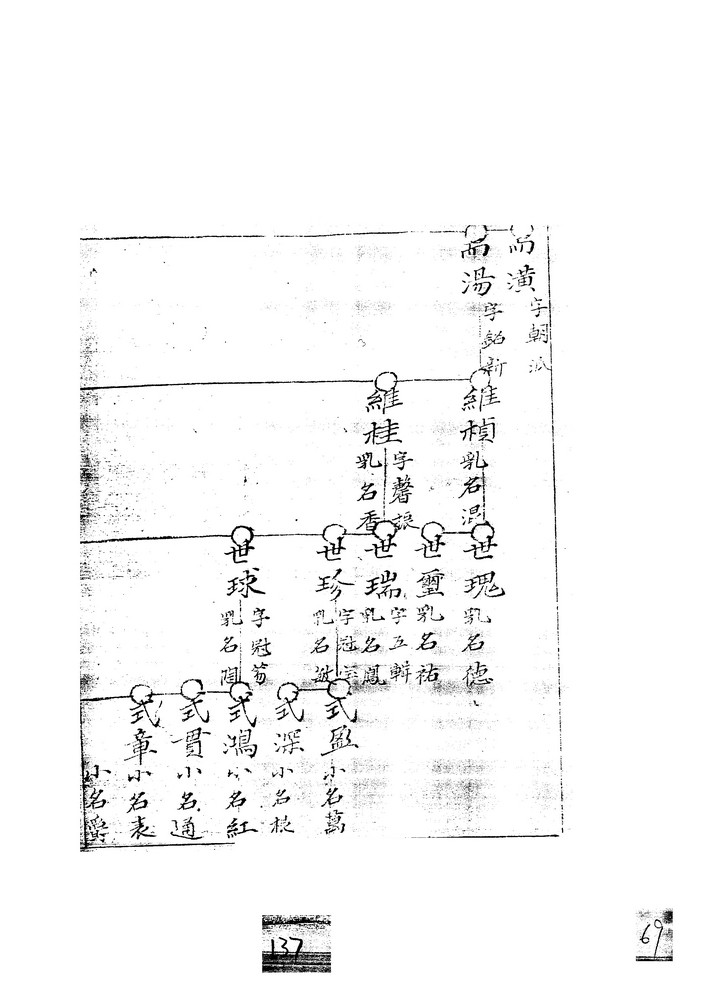 而潢
字朝
而湯
字銘新
維楨
乳名混
維桂
字馨
乳名香
世瑰
乳名德
世璽
乳名祐
世瑞
字五輯
乳名鳳
世珍
字冠
乳名
世球
字冠
乳名
式盈
小名萬
式深
小名根
式鴻
小名紅
式貫
小名通
式章
小名表
小名爵
137
69